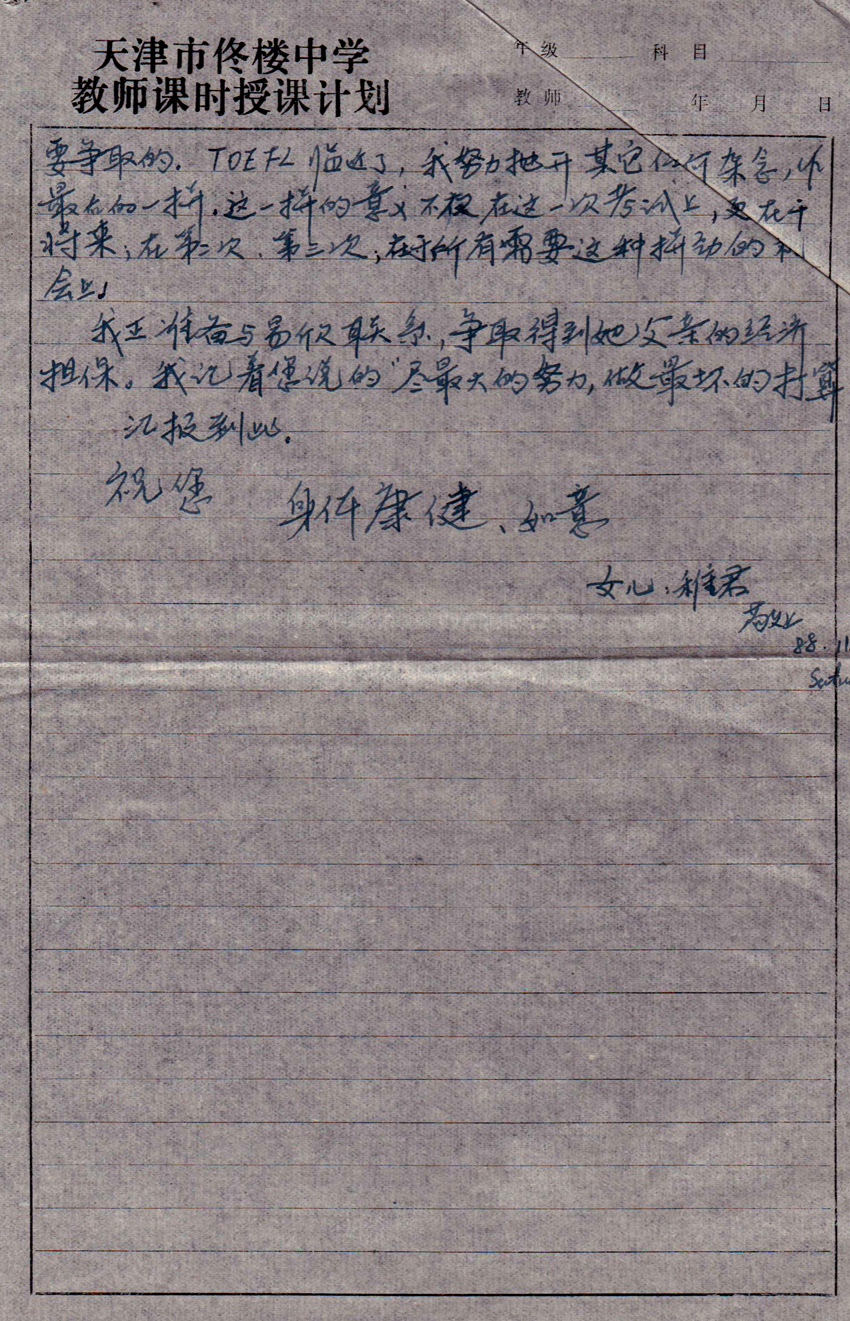 天津市佟楼中学
教师课时授课计划
年级 科目
教师 年 月 日
要争取的. TOEFL 临近了, 我努力抛开其它任何杂念, 作
最后的一拼. 这一拼的意义不仅在这一次考试上, 更在于
将来; 在第二次、第三次; 在于所有需要这种拼劲的
会上.
我正准备与易欣联系, 争取得到她父亲的经济
担保。我记着您说的“尽最大的努力, 做最坏的打算
汇报到此.
祝您
身体康健、如意
女儿: 稚君
敬上
88.11